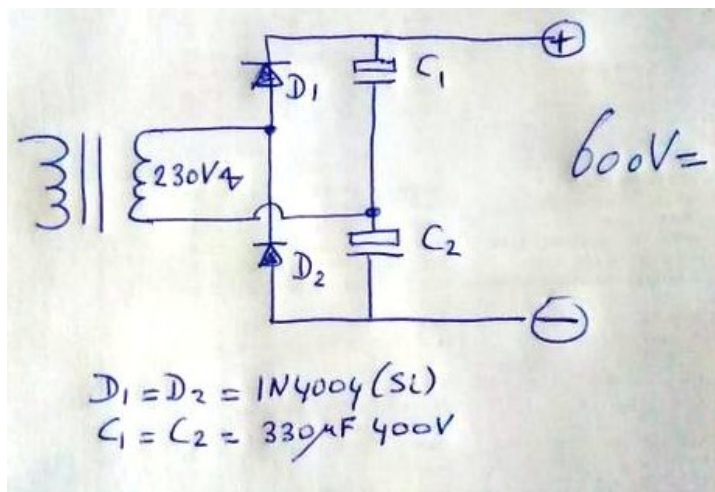 +
D1
C1
230V∿
600V=
C2
D2
−
D1 = D2 = 1N4004 (Si)
C1 = C2 = 330µF 400V